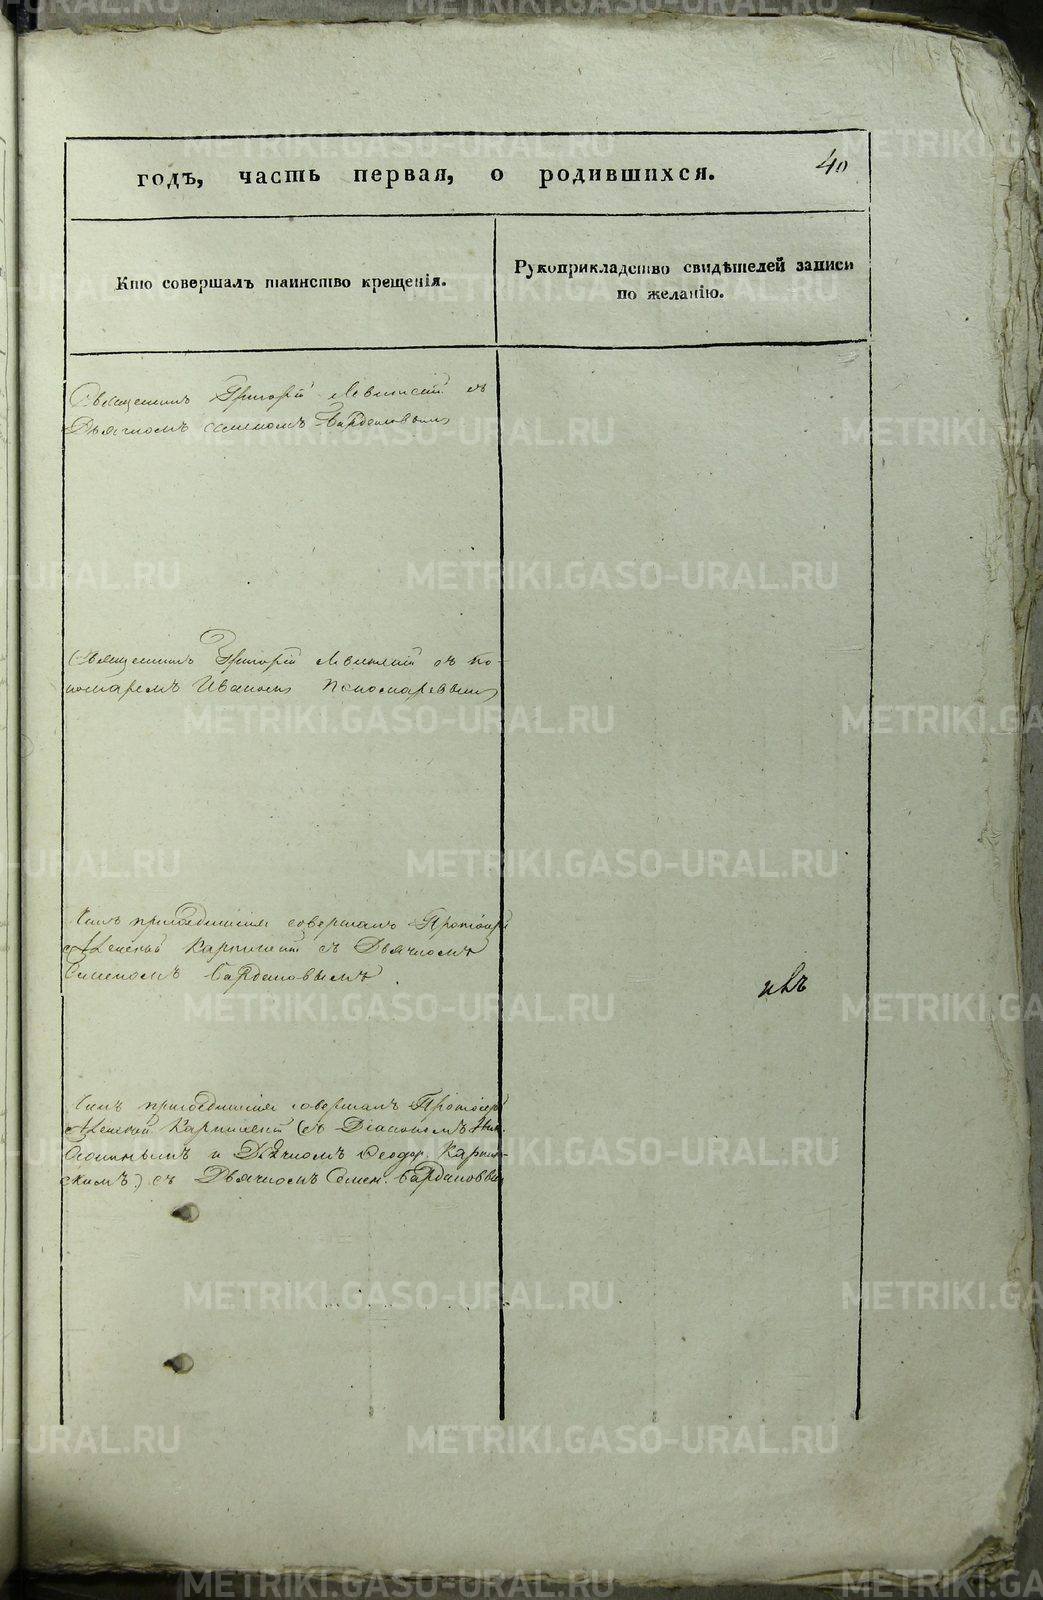 годъ, часть первая, о родившихся.
40
Кто совершалъ таинство крещенія.
Рукоприкладство свидѣтелей записи
по желанію.
Священникъ Григорій Левитскій съ
Дьячкомъ Семеномъ Бардановымъ
Священникъ Григорій Левитскій съ По-
номаремъ Иваномъ Пономаревымъ
Чинъ присоединенія совершалъ Протоіерей
Алексѣй Карпинскій съ Дьячкомъ
Семеномъ Бардановымъ.
Чинъ присоединенія совершалъ Протоіерей
Алексѣй Карпинскій (съ Діакономъ
и Дьячкомъ Феодор. Карпин-
скимъ) съ Дьячкомъ Семен. Бардановымъ
METRIKI.GASO-URAL.RU